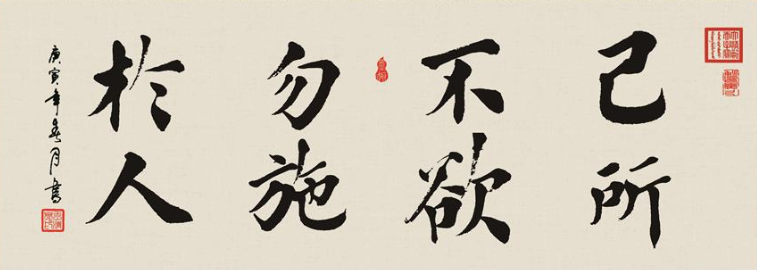 己所
不欲
勿施
於人
庚寅年春月書